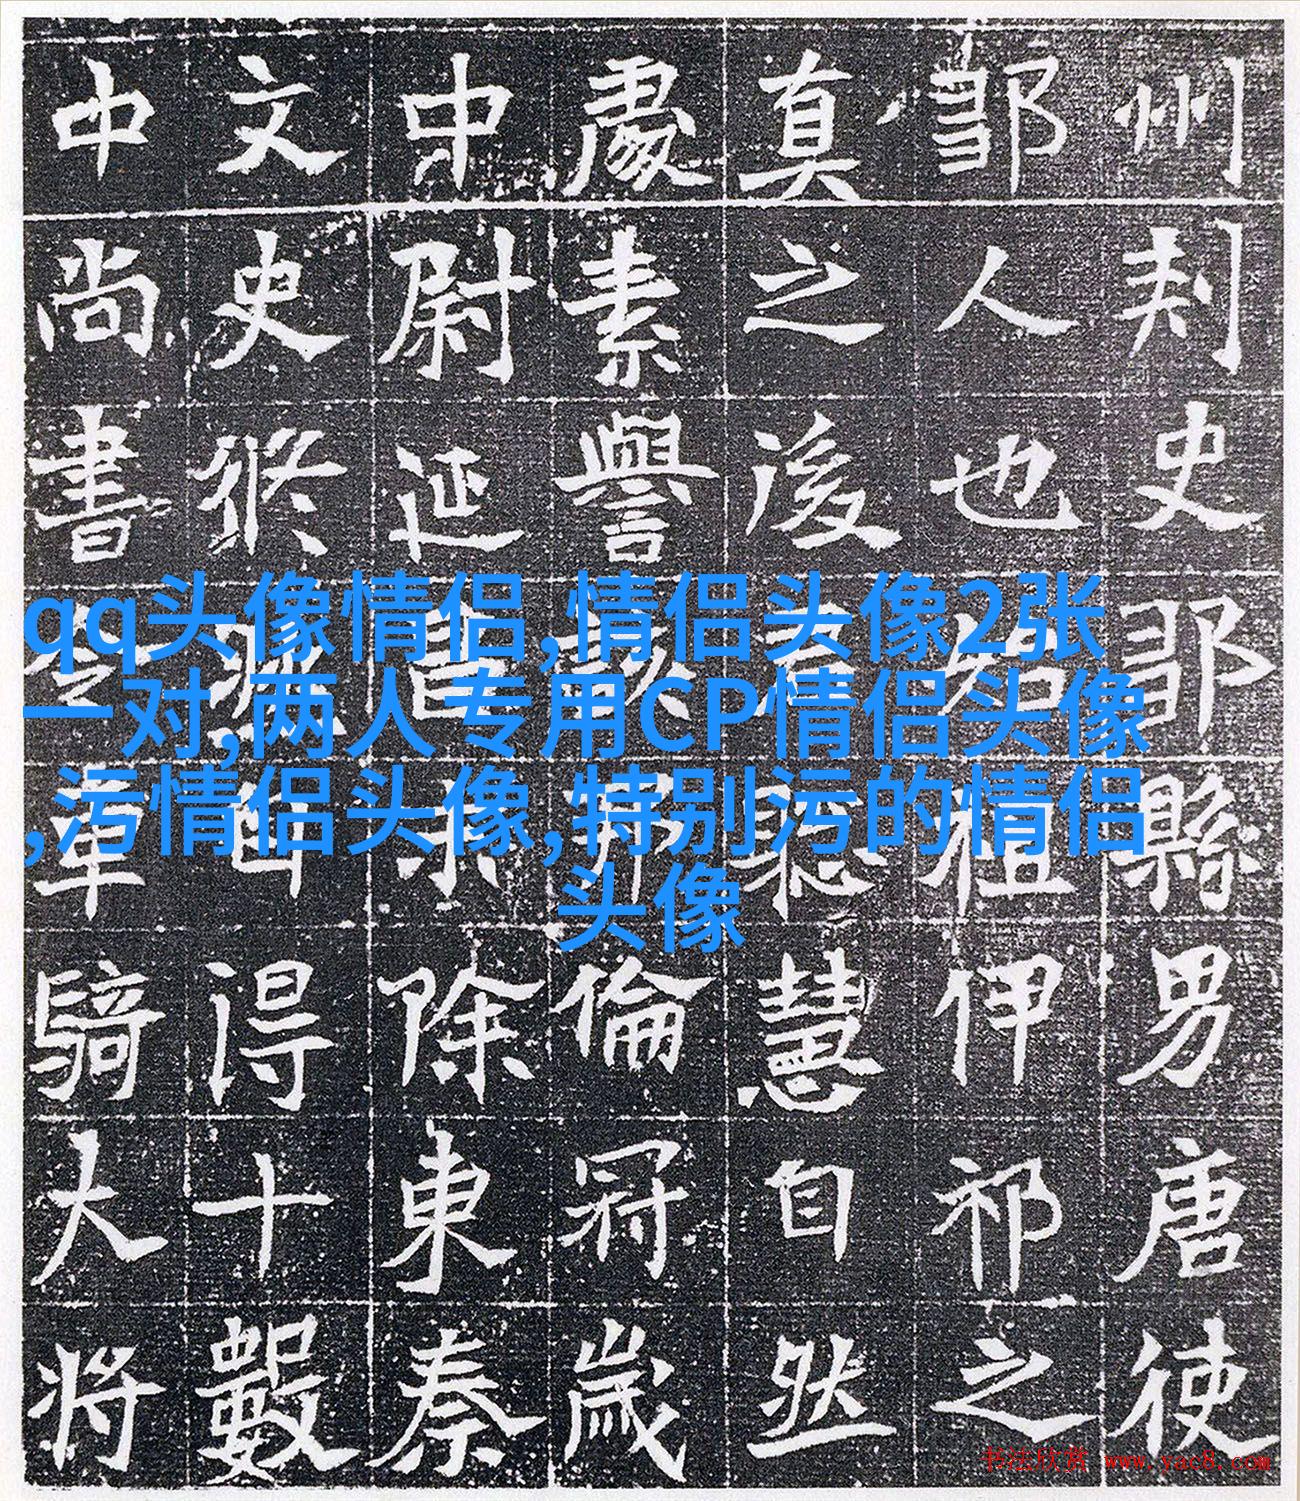 州刾史鄒縣男唐使
鄒人也始祖伊祁之
真之後君聰慧自然
處素譽倫冠歲
中尉延除東秦
文史修得十數
中尚書令車騎大将
qq头像情侣,情侣头像2张
一对,两人专用CP情侣头像
,污情侣头像,特别污的情侣
头像
书法欣赏 www.yac8.com